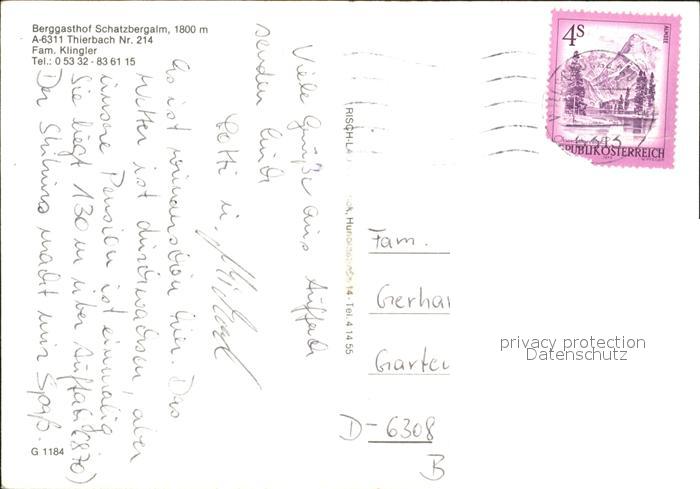 Berggasthof Schatzbergalm, 1800 m
A-6311 Thierbach Nr. 214
Fam. Klingler
Tel.: 0 53 32 - 83 61 15
Viele Grüße aus Auffach
senden Euch
Betti u. Michael
Es ist wunderschön hier. Das
Wetter ist durchwachsen, aber
unsere Pension ist einmalig
Sie liegt 130 m über Auffach (870)
Der Skikurs macht mir Spaß.
G 1184
RISCH-LA
ck, Hun 14 - Tel. 4 14 55
4S
ALMSEE
REPUBLIK ÖSTERREICH
Fam.
Gerhar
Garten
D-6308
B
privacy protection
Datenschutz